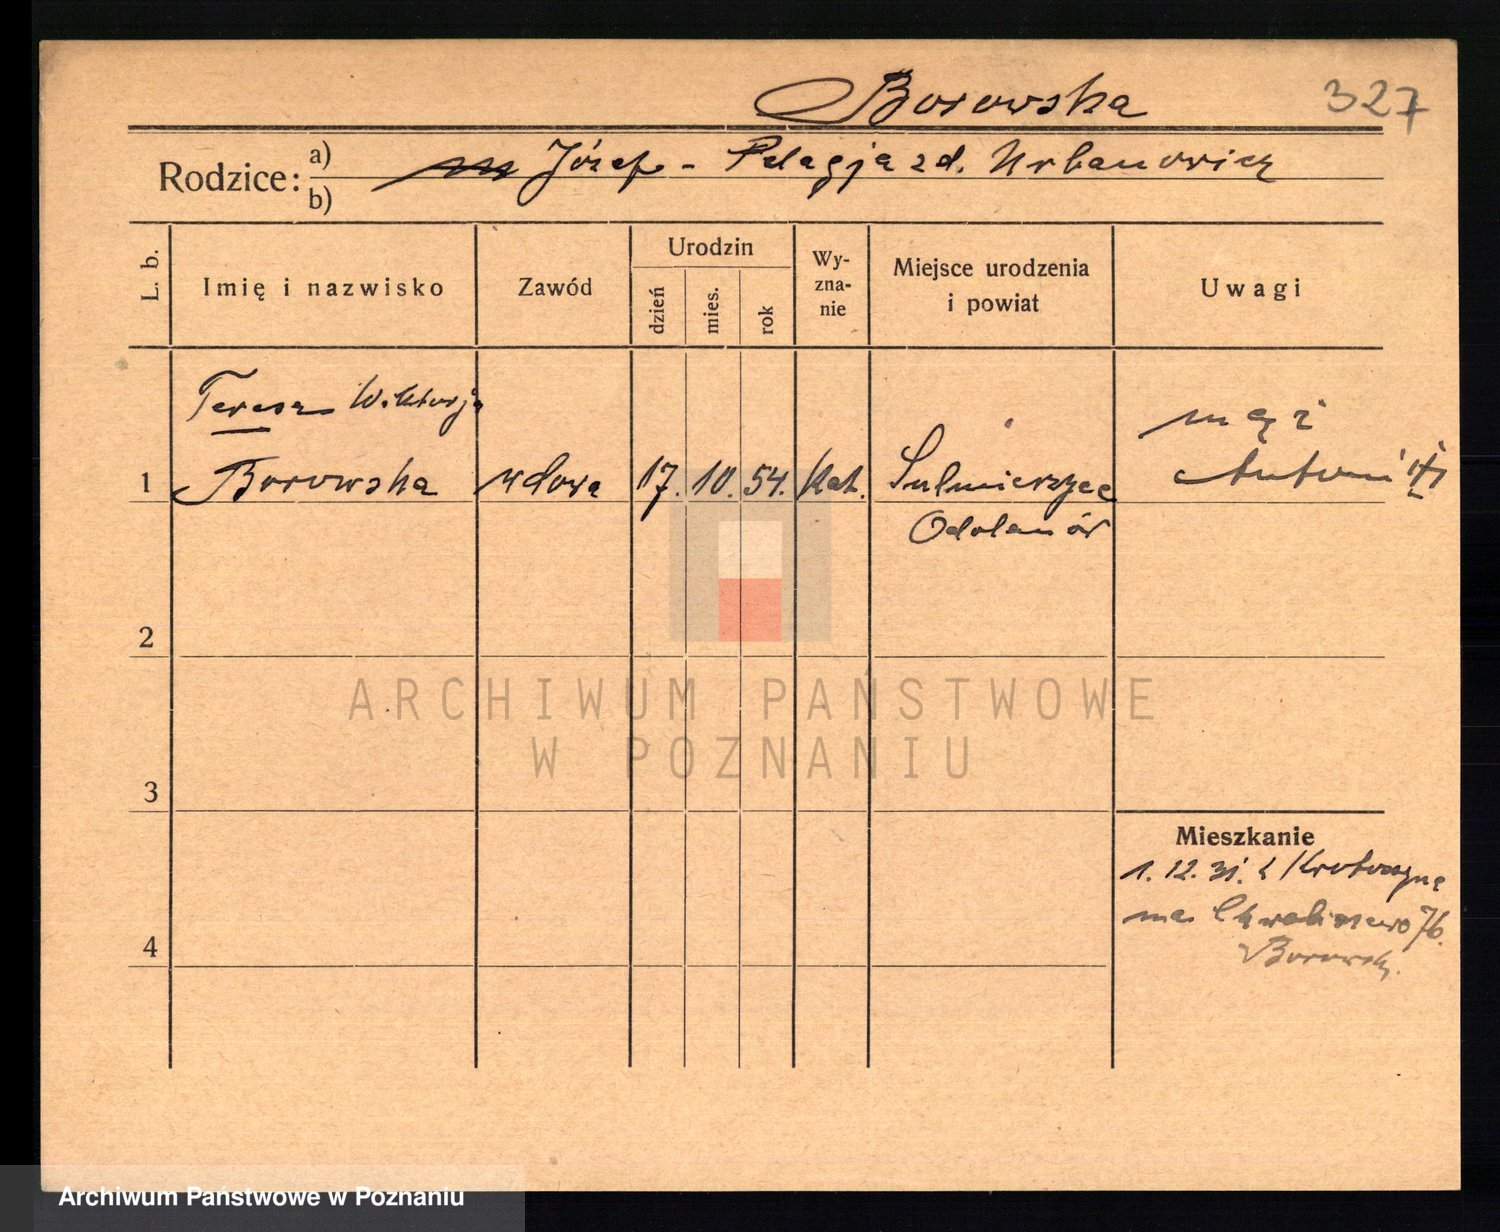 Borowska 327
Rodzice: a) Józef - Pelagja zd. Urbanowicz
b)
L. b. Imię i nazwisko Zawód Urodzin dzień mies. rok Wy-zna-nie Miejsce urodzenia i powiat Uwagi
Teresa Wiktorja mąż
1 Borowska wdowa 17. 10. 54. kat. Sulmierzyce Antoni
Odolanów
2
ARCHIWUM PAŃSTWOWE
W POZNANIU
3
Mieszkanie
1. 12. 31. z Krotoszyna
na Chwaliszewo 76.
4 Borowski.
Archiwum Państwowe w Poznaniu